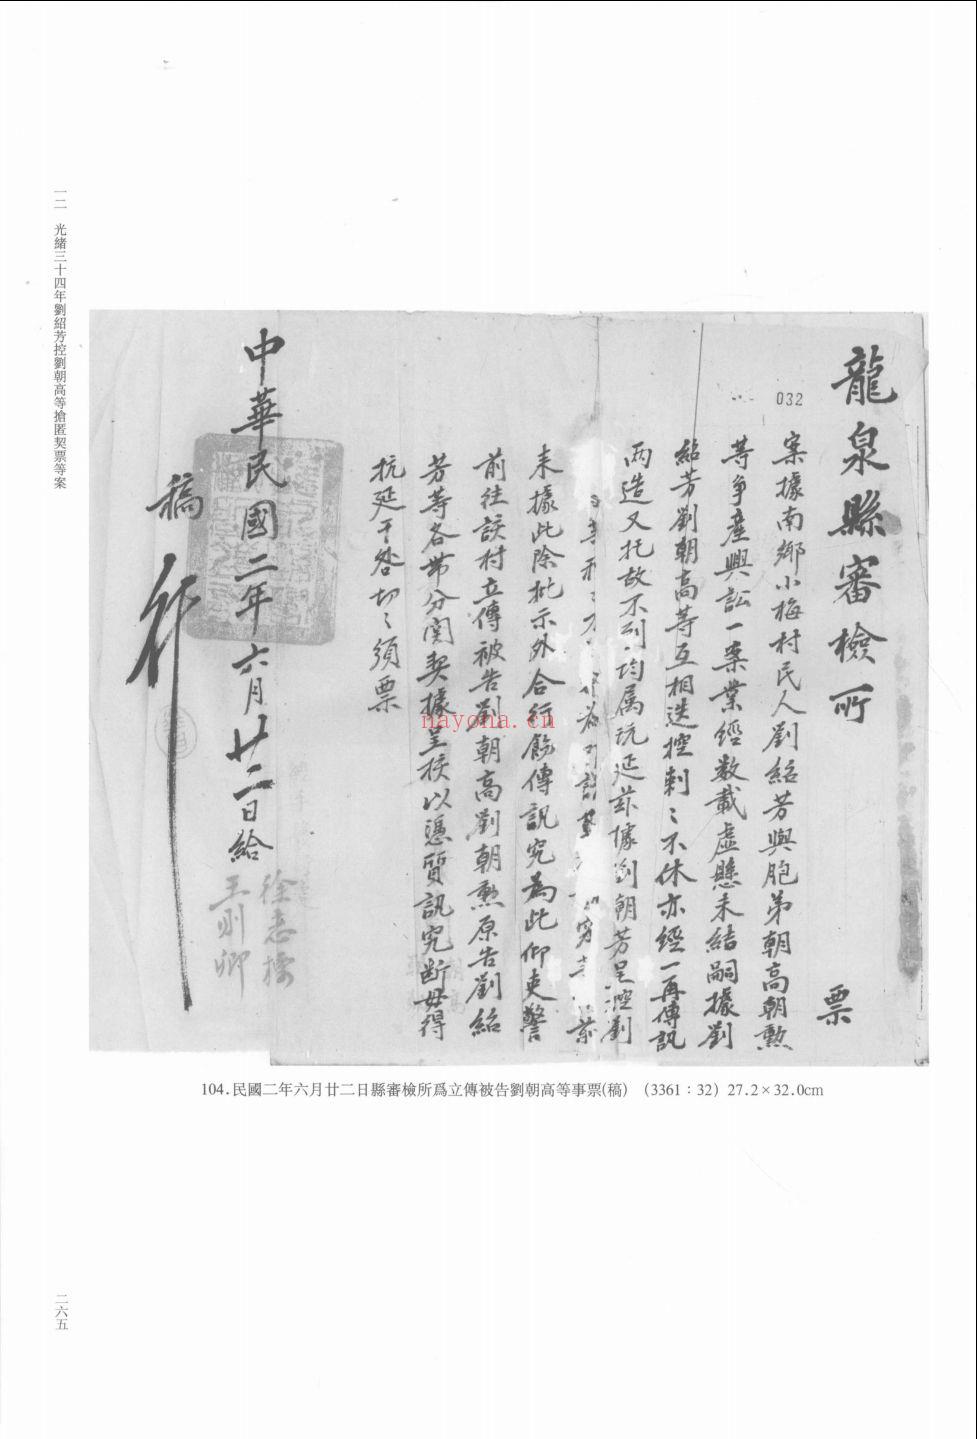 一二　光緒三十四年劉紹芳控劉朝高等搶匿契票等案
龍泉縣審檢所　票
032
案據南鄉小梅村民人劉紹芳與胞弟朝高朝勲
等爭產興訟一案業經數載虛懸未結嗣據劉
紹芳劉朝高等互相迭控刺〻不休亦經一再傳訊
两造又托故不到均属玩延茲據劉朝芳呈控劉
來據此除批示外合行飭傳訊究為此仰吏警
前往該村立傳被告劉朝高劉朝勲原告劉紹
芳等各带分関契據呈核以憑質訊究断毋得
抗延干咎切〻須票
中華民國二年六月廿二日給
徐志標
王則卿
稿　行
nayona.cn
104.民國二年六月廿二日縣審檢所爲立傳被告劉朝高等事票(稿)　(3361：32) 27.2×32.0cm
二六五